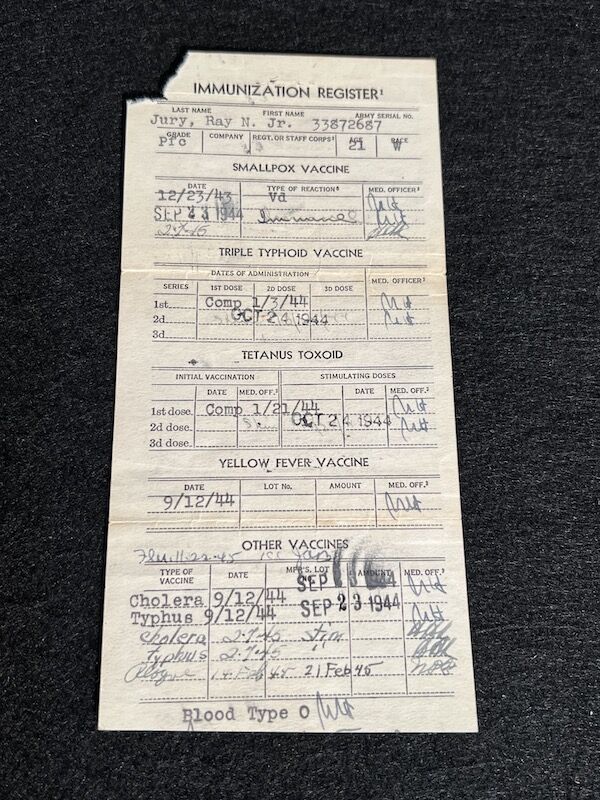 IMMUNIZATION REGISTER¹
LAST NAME FIRST NAME ARMY SERIAL NO.
Jury, Ray N. Jr. 33872687
GRADE COMPANY REGT. OR STAFF CORPS² AGE RACE
Pfc 21 W
SMALLPOX VACCINE
DATE TYPE OF REACTION⁸ MED. OFFICER³
12/23/43 Vd
SEP 23 1944 Immune
2-7-45
TRIPLE TYPHOID VACCINE
DATES OF ADMINISTRATION
SERIES 1ST DOSE 2D DOSE 3D DOSE MED. OFFICER³
1st Comp 1/3/44
2d OCT 24 1944
3d
TETANUS TOXOID
INITIAL VACCINATION STIMULATING DOSES
DATE MED. OFF.³ DATE MED. OFF.³
1st dose. Comp 1/21/44
2d dose. OCT 24 1944
3d dose.
YELLOW FEVER VACCINE
DATE LOT No. AMOUNT MED. OFF.³
9/12/44
OTHER VACCINES
Flu 11-22-45 1cc
TYPE OF VACCINE DATE MFR'S. LOT AMOUNT MED. OFF.³
Cholera 9/12/44 SEP 1944
Typhus 9/12/44 SEP 23 1944
Cholera 2-7-45 Stim
Typhus 2-7-45 "
Plague 14 Feb 45 21 Feb 45
Blood Type O